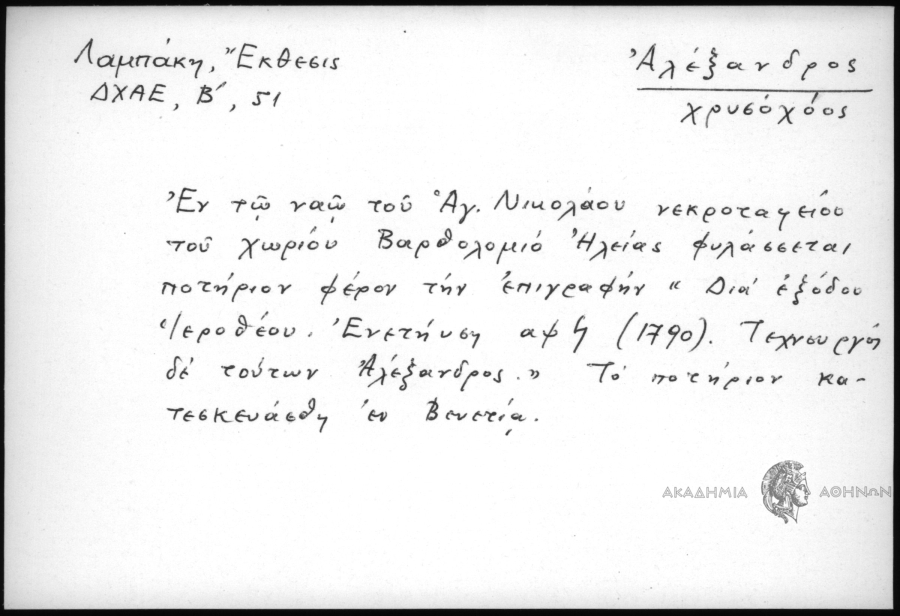 Λαμπάκη, Ἔκθεσις
ΔΧΑΕ, Β΄, 51
Ἀλέξανδρος
χρυσόχόος
Ἐν τῷ ναῷ τοῦ Ἁγ. Νικολάου νεκροταφείου
τοῦ χωρίου Βαρθολομιό Ἠλείας φυλάσσεται
ποτήριον φέρον τήν ἐπιγραφήν « Διά ἐξόδου
Ἱεροθέου. Ἐνετήησι αψϟ (1790). Τεχνουργός
δέ τούτων Ἀλέξανδρος.» Τό ποτήριον κα-
τεσκευάσθη ἐν Βενετίᾳ.
ΑΚΑΔΗΜΙΑ ΑΘΗΝΩΝ